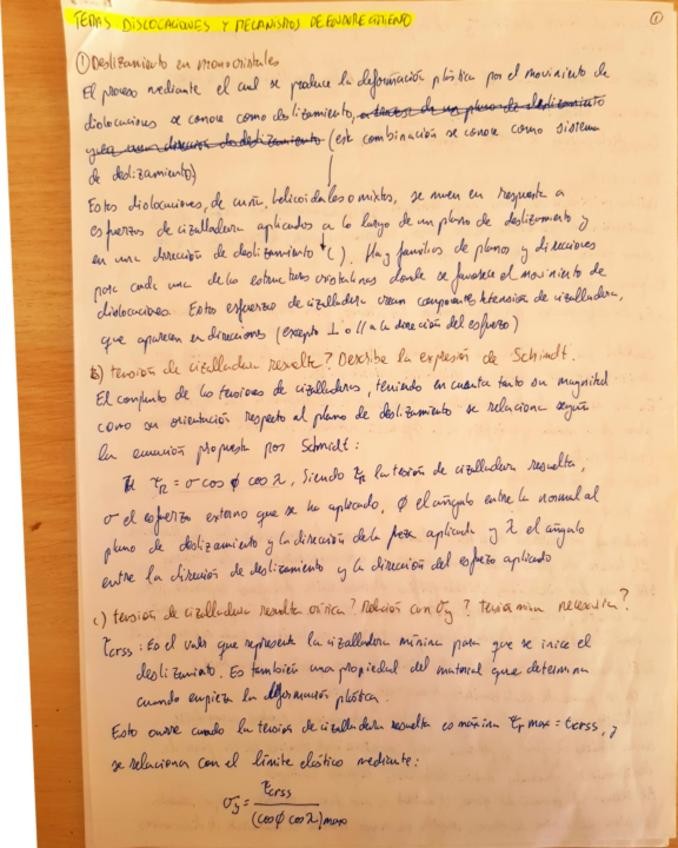 TEMA5 DISLOCACIONES Y MECANISMOS DE ENDURECIMIENTO
1
① Deslizamiento en monocristales
El proceso mediante el cual se produce la deformación plástica por el movimiento de
dislocaciones se conoce como deslizamiento, a través de un plano de deslizamiento
y en una dirección de deslizamiento (esta combinación se conoce como sistema
de deslizamiento)
Estas dislocaciones, de cuña, helicoidales o mixtas, se mueven en respuesta a
esfuerzos de cizalladura aplicados a lo largo de un plano de deslizamiento y
en una dirección de deslizamiento ( ). Hay familias de planos y direcciones
para cada una de las estructuras cristalinas donde se favorece el movimiento de
dislocaciones. Estos esfuerzos de cizalladura crean componentes tensión de cizalladura,
que aparecen en direcciones (excepto ⊥ o // a la dirección del esfuerzo)
b) tensión de cizalladura resuelta? Describe la expresión de Schimdt.
El conjunto de las tensiones de cizalladuras, teniendo en cuenta tanto su magnitud
como su orientación respecto al plano de deslizamiento se relaciona según
la ecuación propuesta por Schmidt:
τR = σ cos ϕ cos λ, Siendo τR la tensión de cizalladura resuelta,
σ el esfuerzo externo que se ha aplicado, ϕ el ángulo entre la normal al
plano de deslizamiento y la dirección de la fuerza aplicada y λ el ángulo
entre la dirección de deslizamiento y la dirección del esfuerzo aplicado
c) tensión de cizalladura resuelta crítica? Relación con σy? Tensión min necesaria?
τcrss: Es el valor que representa la cizalladura mínima para que se inicie el
deslizamiento. Es también una propiedad del material que determina
cuando empieza la deformación plástica.
Esto ocurre cuando la tensión de cizalladura resuelta es máxima τr max = τcrss, y
se relaciona con el límite elástico mediante:
σy = τcrss
(cosϕ cosλ)max